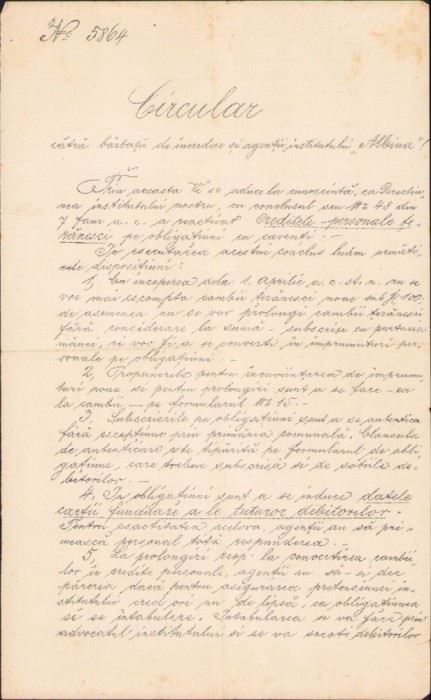 No 5864
Circular
cătră bărbații de încredere și agenții institutului „Albina“!
Prin aceasta Vi se aduce la cunoscință, ca Direcțiu-
nea institutului nostru, cu conclusul seu No 48 din
7 faur a. c. a reactivat Creditele personale țe-
rănesci pe obligațiuni cu cavenți. -
In esecutarea acestui conclus luăm următó-
rele disposițiuni:
1, Cu inceperea dela 1. Aprilie a. c. st. n. nu se
vor mai escompta cambii țerănesci noue sub fl 100.
de asemenea nu se vor prolongi cambii țerănesci
fără considerare la sumă - subscrise cu punerea
mânei, ci vor fi a se converti în împrumuturi per-
sonale pe obligațiuni. -
2, Propunerile pentru încuviințarea de împrumu-
turi noue si pentru prolongiri sunt a se face - ca
la cambii - pe formularul No 15. -
3. Subscrierile pe obligațiuni sunt a se autentica
fără escepțiune prin primăria comunală. Clausula
de autenticare este tipărită pe formularul de obli-
gațiune, care trebue subscrisa si de soțiile de-
bitorilor. -
4. In obligațiuni sunt a se induce datele
cărții funduare a le tuturor debitorilor.
Pentru esactitatea acelora, agenții au să pri-
mească personal totă respunderea. -
5. La prolongiri resp. la convertirea cambii-
lor in credite personali, agenții au să-și dee
părerea dacă pentru asigurarea pretensiunei in-
stitutului cred ori nu de lipsă, ca obligațiunea
să se intabuleze. Intabularea se va face prin
advocatul institutului si se va socoti debitorilor